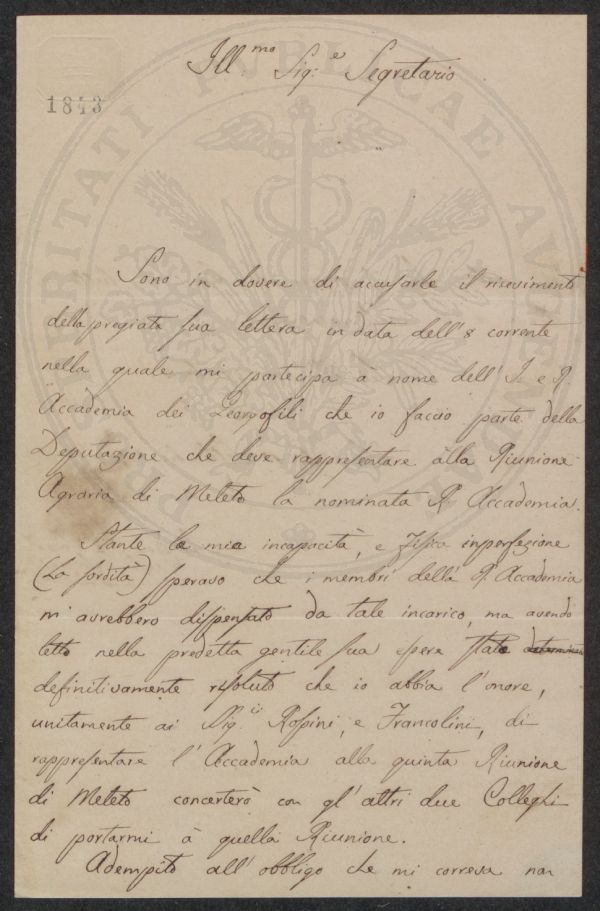 Ill.mo Sig.e Segretario
1843
PROSPERITATI PUBLICAE AUGENDAE
Sono in dovere di accusarle il ricevimento
della pregiata sua lettera in data dell' 8 corrente
nella quale mi partecipa à nome dell' I. e R.
Accademia dei Georgofili che io faccio parte della
Deputazione che deve rappresentare alla Riunione
Agraria di Meleto la nominata R. Accademia.
Stante la mia incapacità, e fisica imperfezione
(la sordità) speravo che i membri della R. Accademia
m' avrebbero dispensato da tale incarico, ma avendo
letto nella predetta gentile sua essere stato determinato
definitivamente risoluto che io abbia l'onore,
unitamente ai Sig.ii Rossini, e Francolini, di
rappresentare l'Accademia alla quinta Riunione
di Meleto concerterò con gl' altri due Colleghi
di portarmi à quella Riunione.
Adempito all' obbligo che mi correva non